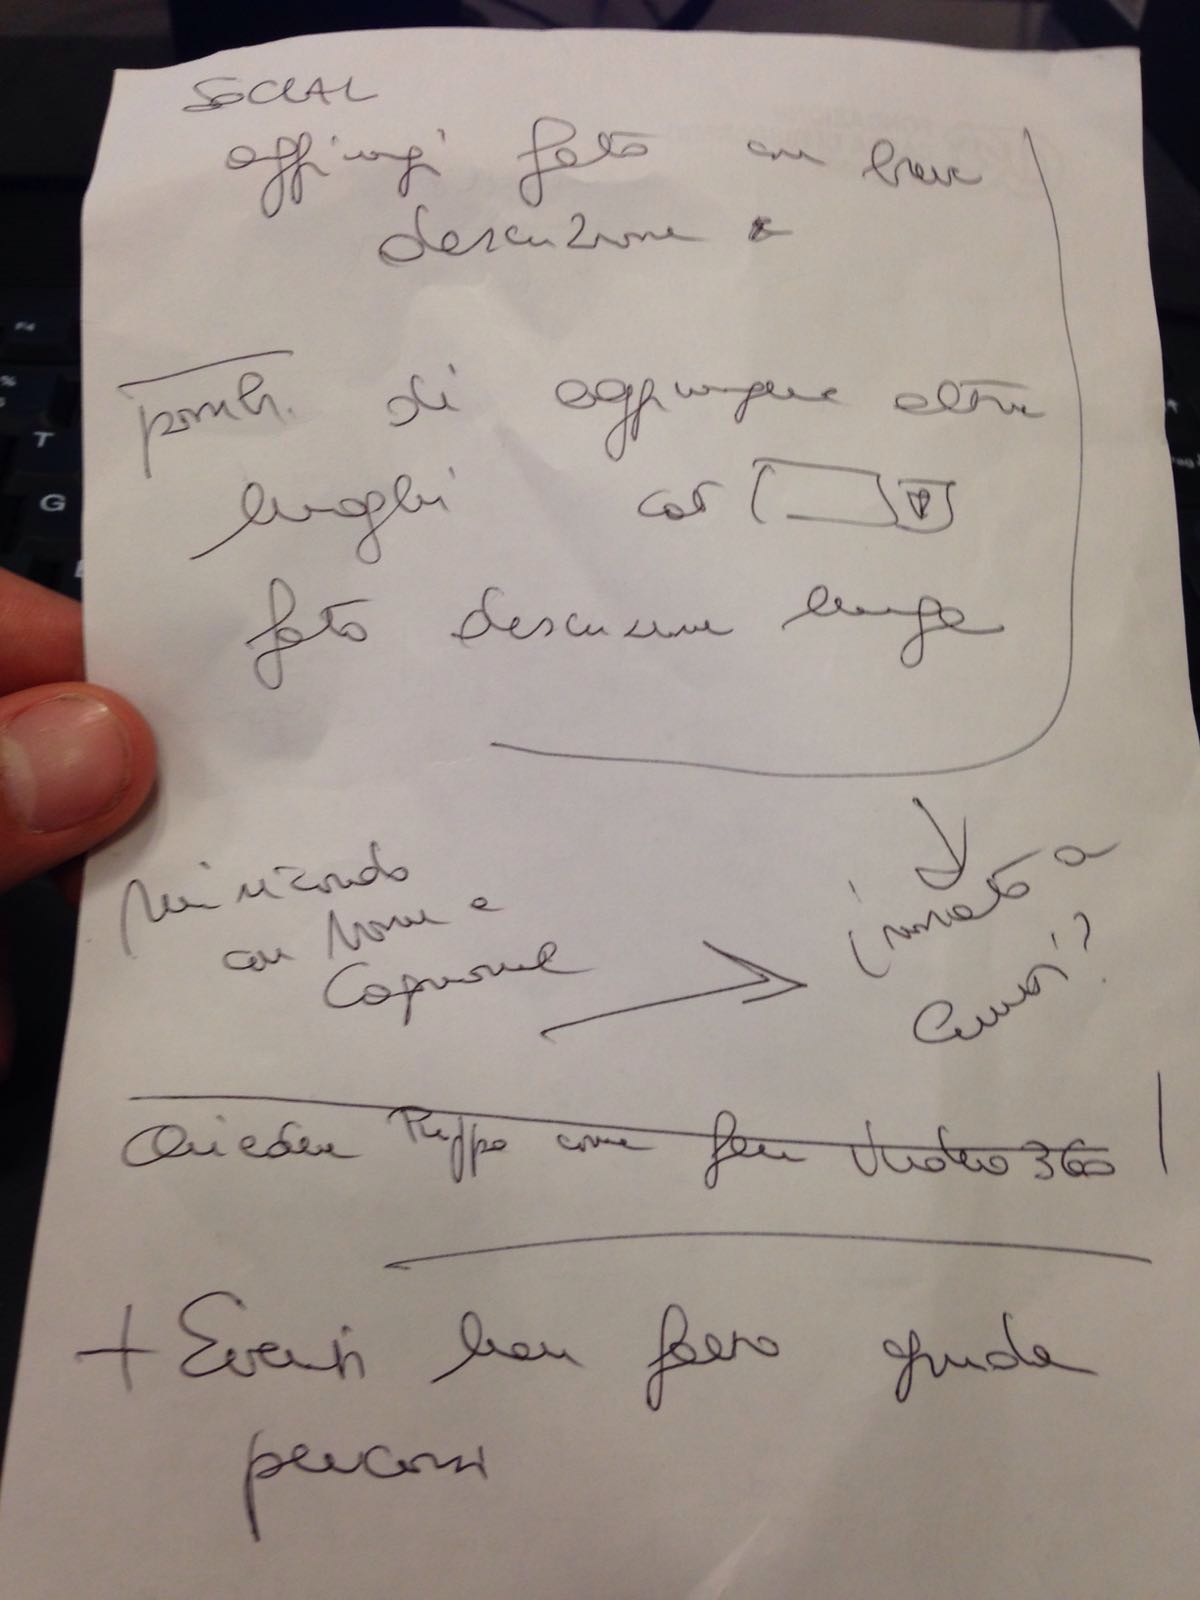 SOCIAL
aggiungi foto con breve
descrizione e
possib. di aggiungere altri
luoghi cat
foto descrizione lunga
Mini ricordo
con Nome e
Cognome
inviato a
Chiedere come fare Video 360
+ Eventi
percorsi